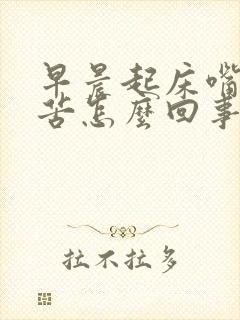 早晨起床嘴
苦怎麼回事
拉不拉多